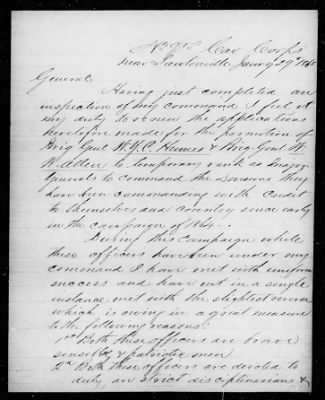 Hd Qrs Cav Corps
near Lawtonville Jany 29th 1865
General
Having just completed an
inspection of my command I feel it
my duty to renew the applications
heretofore made for the promotion of
Brig Genl W.Y.C. Humes & Brig Genl W.
W. Allen to temporary rank as Major
Generals to command the Divisions they
have been commanding with credit
to themselves and country since early
in the campaign of 1864.
During this campaign while
these officers have been under my
command I have met with uniform
success and have not in a single
instance met with the slightest reverse
which is owing in a great measure
to the following reasons:
1st Both these officers are brave
sensible & patriotic men
2nd Both these officers are devoted to
duty are strict disciplinarians &